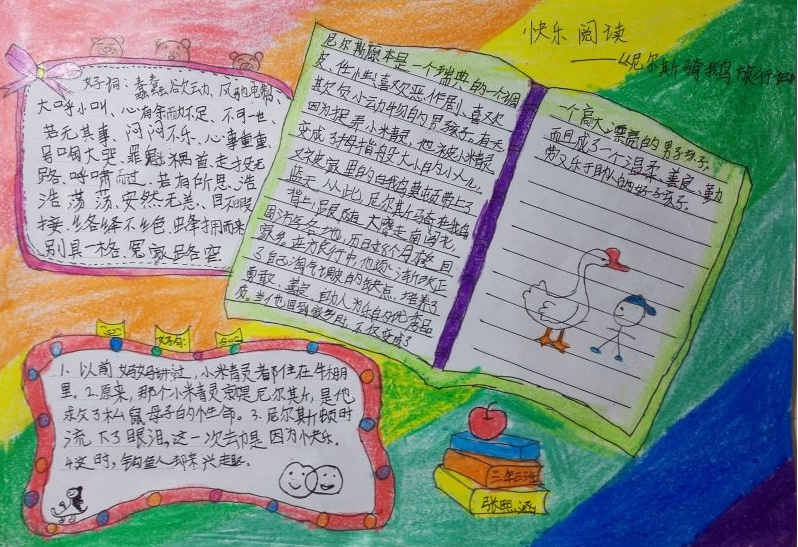 快乐阅读
——《尼尔斯骑鹅旅行记》
好词：蠢蠢欲动、风驰电掣、
大呼小叫、心有余而力不足、不可一世、
若无其事、闷闷不乐、心事重重、
号啕大哭、罪魁祸首、走投无
路、呼啸而过、若有所思、浩
浩荡荡、安然无恙、目不暇
接、络绎不绝、蜂拥而来
别具一格、冤家路窄
尼尔斯原本是一个瑞典的一个调
皮、性小喜欢恶作剧、喜欢
欺负小动物的男孩子。有天
因为捉弄小米青灵，他被小米青灵
变成了拇指般大小的小人儿。
又和家里的白鹅莫顿带上了
蓝天，从此，尼尔斯骑在鹅
背上，跟随大雁走南闯北，
周游各地，历时8个月才返回
家乡。在旅行中，他逐渐改正
了自己淘气调皮的缺点，培养了
勇敢、善良、助人为乐的优秀品
质。当他回到家乡时，不仅变成了
一个高大漂亮的男孩子，
而且成了一个温柔、善良、勤劳
又乐于助人的好孩子。
好句：
1. 以前妈妈讲过，小米青灵都住在牛棚
里。2.原来，那个小米青灵就是尼尔斯，是他
救了松鼠母子的个性命。3.尼尔斯顿时
流下了眼泪，这一次却是因为快乐。
4.这时，钓鱼人却来兴趣。
三年三班
张熙涵